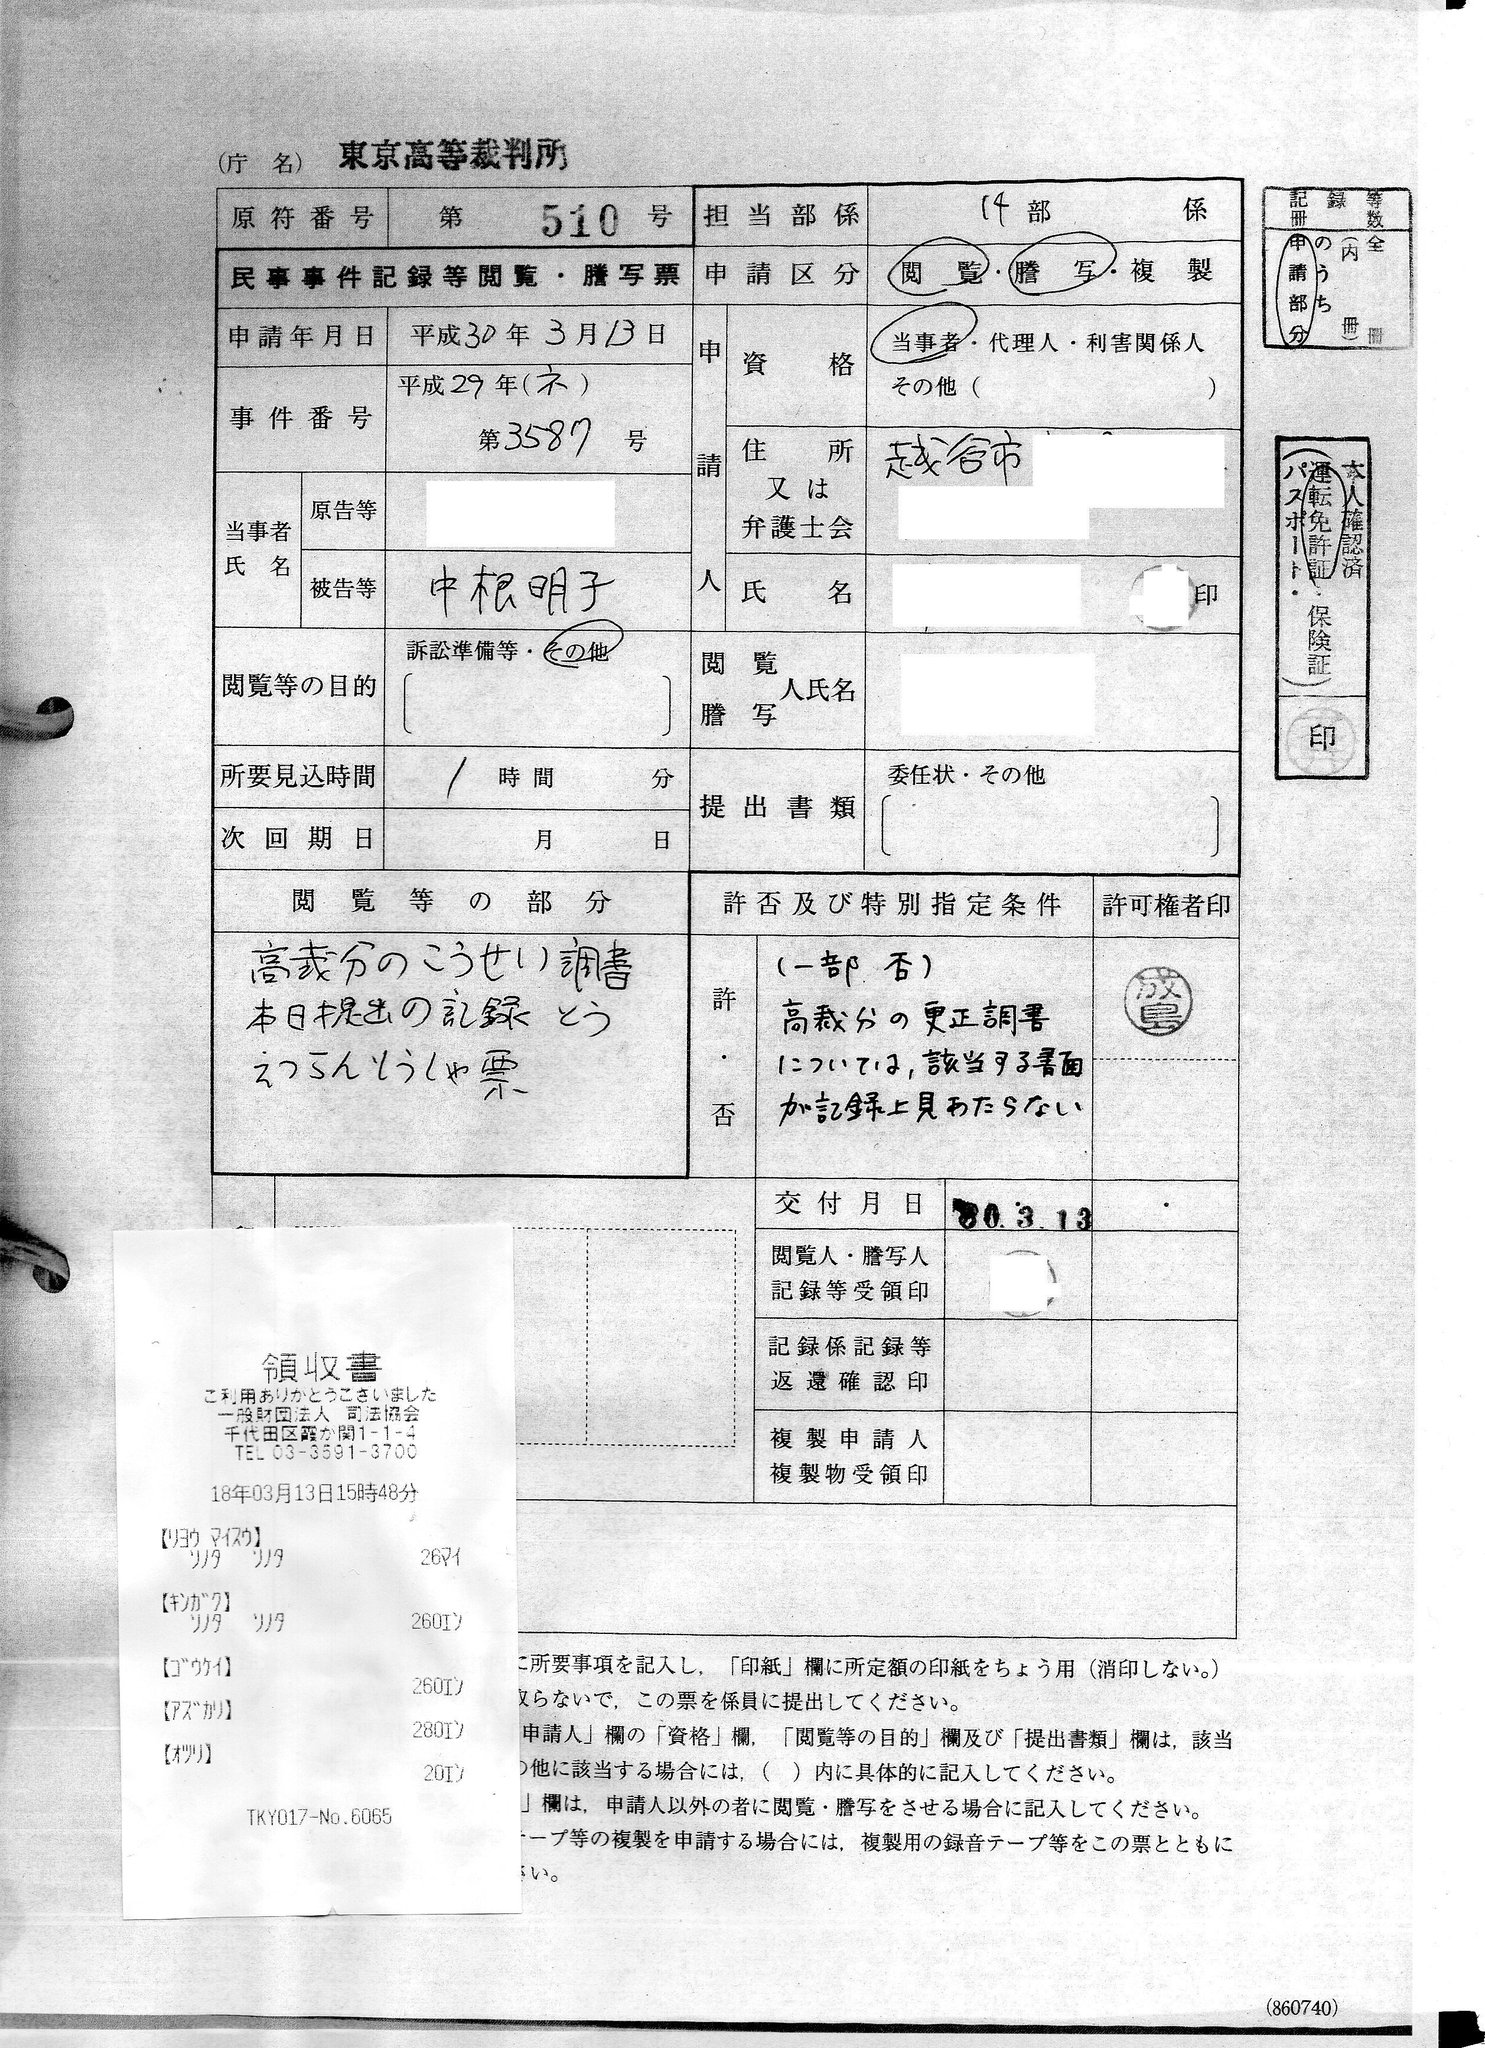 (庁 名) 東京高等裁判所
原符番号 第 510 号
担当部係 14 部 係
民事事件記録等閲覧・謄写票
申請区分 閲覧・謄写・複製
申請年月日 平成30年3月13日
事件番号 平成29年(ネ)
第3587号
当事者氏名
原告等
被告等 中根明子
閲覧等の目的 訴訟準備等・その他
所要見込時間 1 時間 分
次回期日 月 日
申請人
資格 当事者・代理人・利害関係人
その他( )
住所 越谷市
又は
弁護士会
氏名 印
閲覧
謄写 人氏名
提出書類 委任状・その他
閲覧等の部分
高裁分のこうせい調書
本日提出の記録とう
えつらんとうしゃ票
許否及び特別指定条件 許可権者印
許・否
(一部 否)
高裁分の更正調書
については,該当する書面
が記録上見あたらない
成島
交付月日 30.3.13
閲覧人・謄写人
記録等受領印
記録係記録等
返還確認印
複製申請人
複製物受領印
記録等
冊数
全 冊
(内 冊)
のうち
申請部分
本人確認済
(運転免許証・保険証
パスポート・ )
印
領収書
ご利用ありがとうございました
一般財団法人 司法協会
千代田区霞が関1-1-4
TEL 03-3591-3700
18年03月13日15時48分
【リヨウ マイスウ】
ソノタ ソノタ 26マイ
【キンガク】
ソノタ ソノタ 260エン
【ゴウケイ】
260エン
【アズカリ】
280エン
【オツリ】
20エン
TKY017-No.6065
に所要事項を記入し,「印紙」欄に所定額の印紙をちょう用(消印しない。)
取らないで,この票を係員に提出してください。
申請人」欄の「資格」欄,「閲覧等の目的」欄及び「提出書類」欄は,該当
の他に該当する場合には,( )内に具体的に記入してください。
」欄は,申請人以外の者に閲覧・謄写をさせる場合に記入してください。
テープ等の複製を申請する場合には,複製用の録音テープ等をこの票とともに
さい。
(860740)